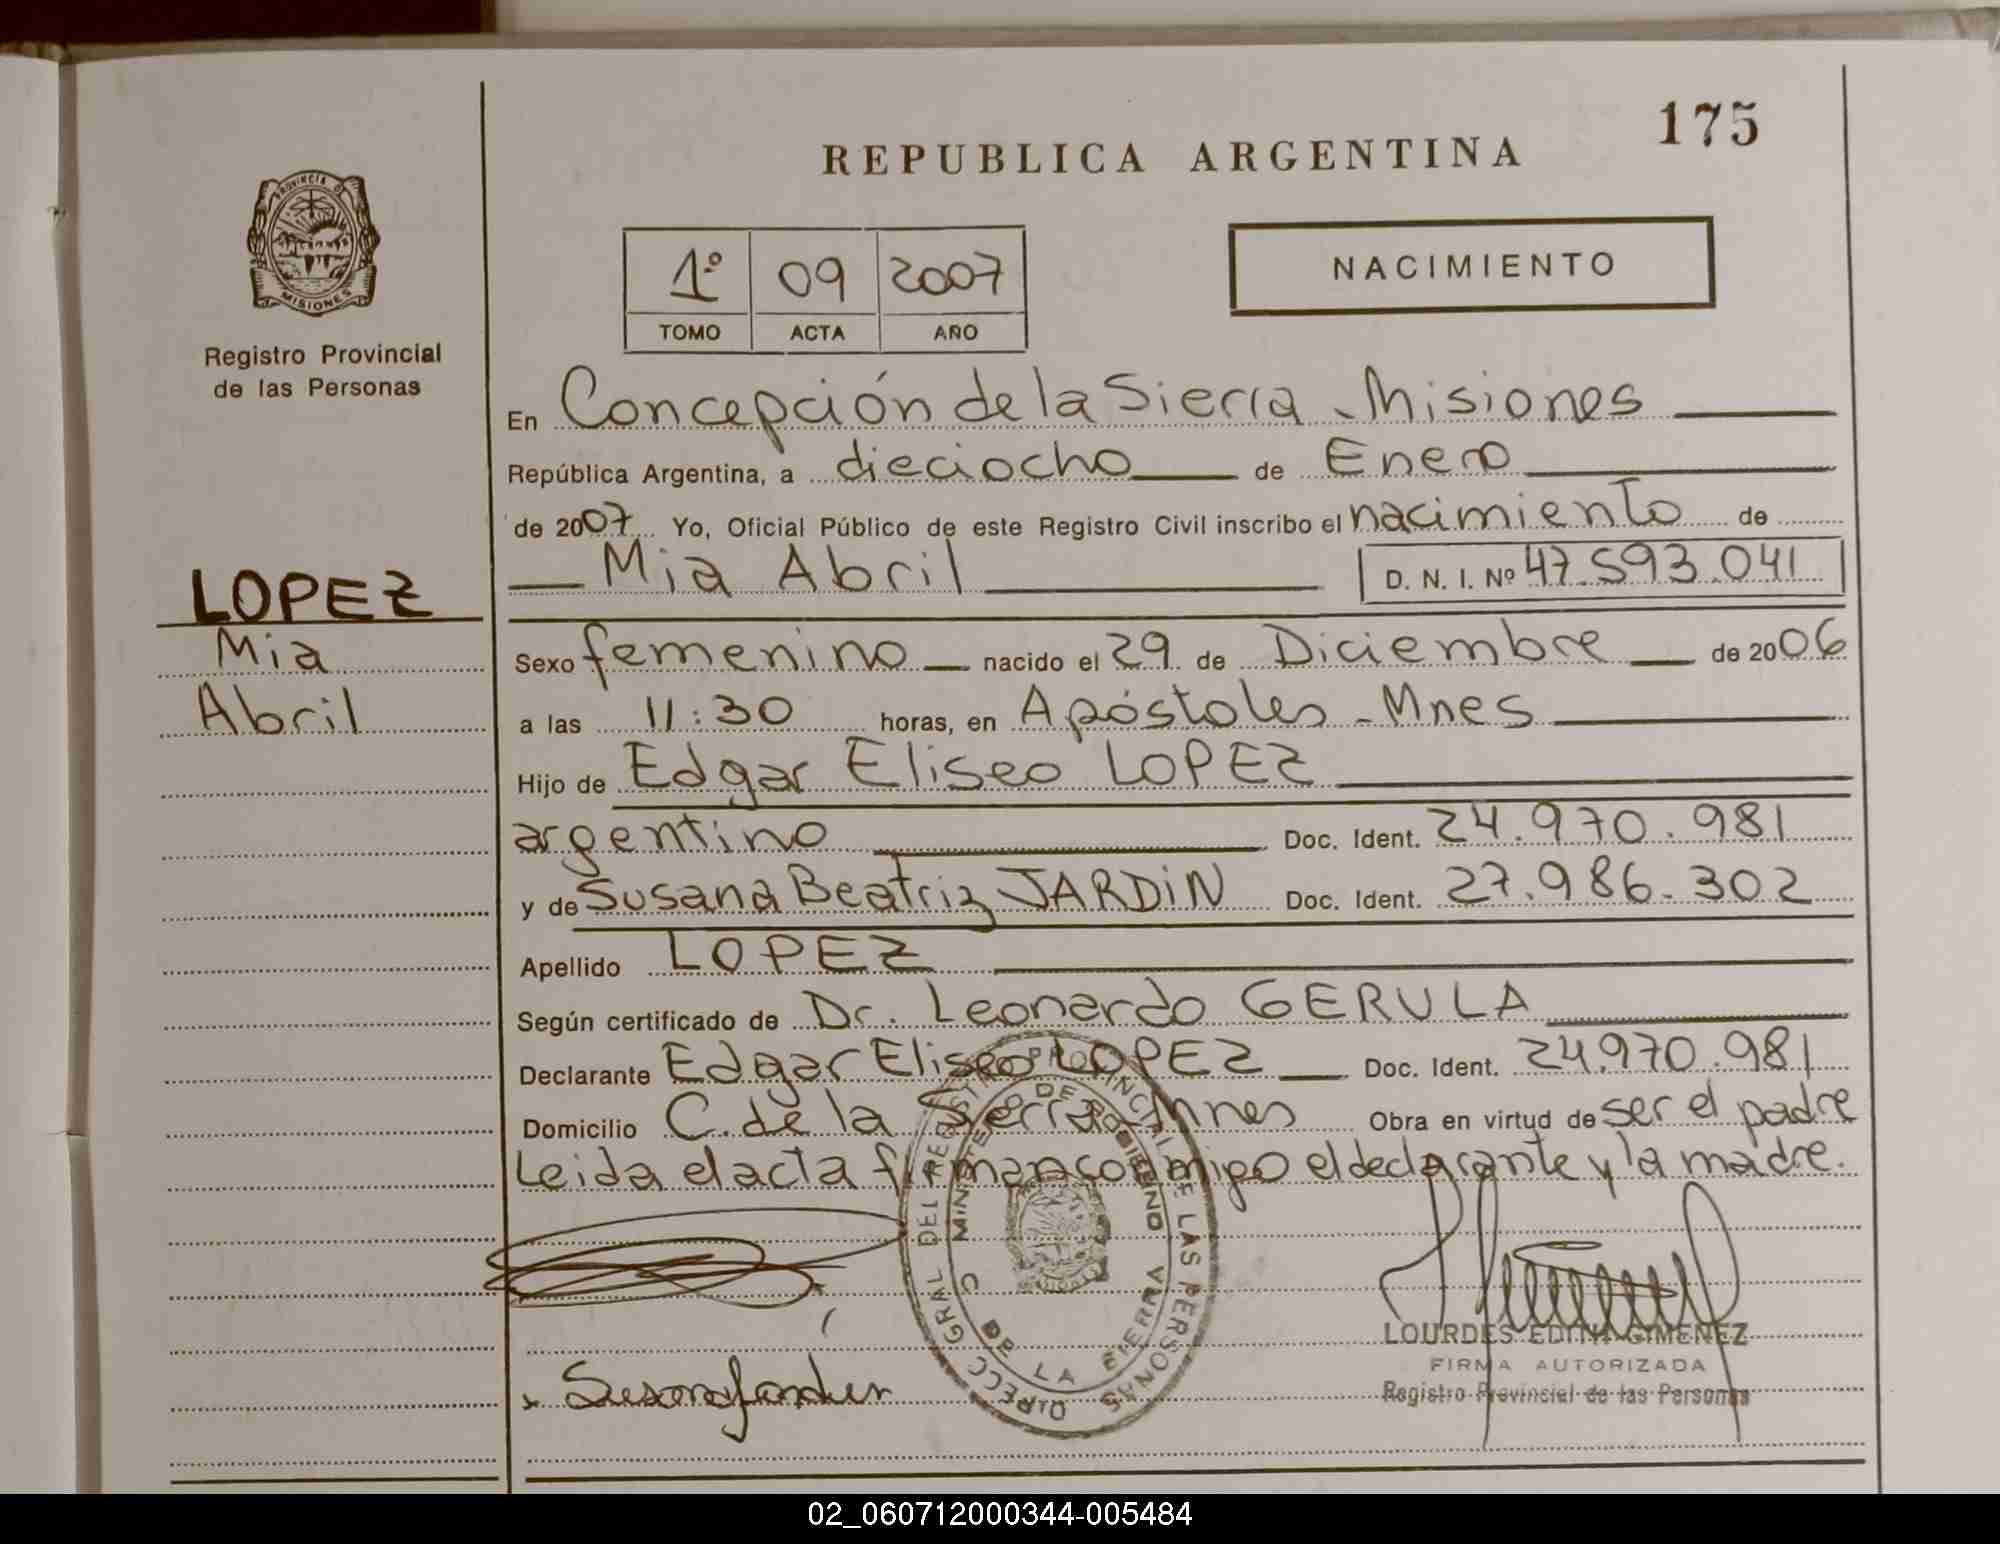 175
REPUBLICA ARGENTINA
PROVINCIA DE
MISIONES
Registro Provincial
de las Personas
1º 09 2007
TOMO ACTA AÑO
NACIMIENTO
En Concepción de la Sierra - Misiones
República Argentina, a dieciocho de Enero
de 2007 Yo, Oficial Público de este Registro Civil inscribo el nacimiento de
Mia Abril D. N. I. Nº 47.593.041
LOPEZ
Mia
Abril
Sexo femenino nacido el 29 de Diciembre de 2006
a las 11:30 horas, en Apóstoles - Mnes
Hijo de Edgar Eliseo LOPEZ
argentino Doc. Ident. 24.970.981
y de Susana Beatriz JARDIN Doc. Ident. 27.986.302
Apellido LOPEZ
Según certificado de Dr. Leonardo GERULA
Declarante Edgar Eliseo LOPEZ Doc. Ident. 24.970.981
Domicilio C. de la Sierra Mnes Obra en virtud de ser el padre
Leida el acta firman conmigo el declarante y la madre.
DIRECC GRAL DEL REGISTRO PROVINCIAL DE LAS PERSONAS
MINISTERIO DE GOBIERNO
C DE LA SIERRA
LOURDES EDITH GIMENEZ
FIRMA AUTORIZADA
Registro Provincial de las Personas
02_060712000344-005484